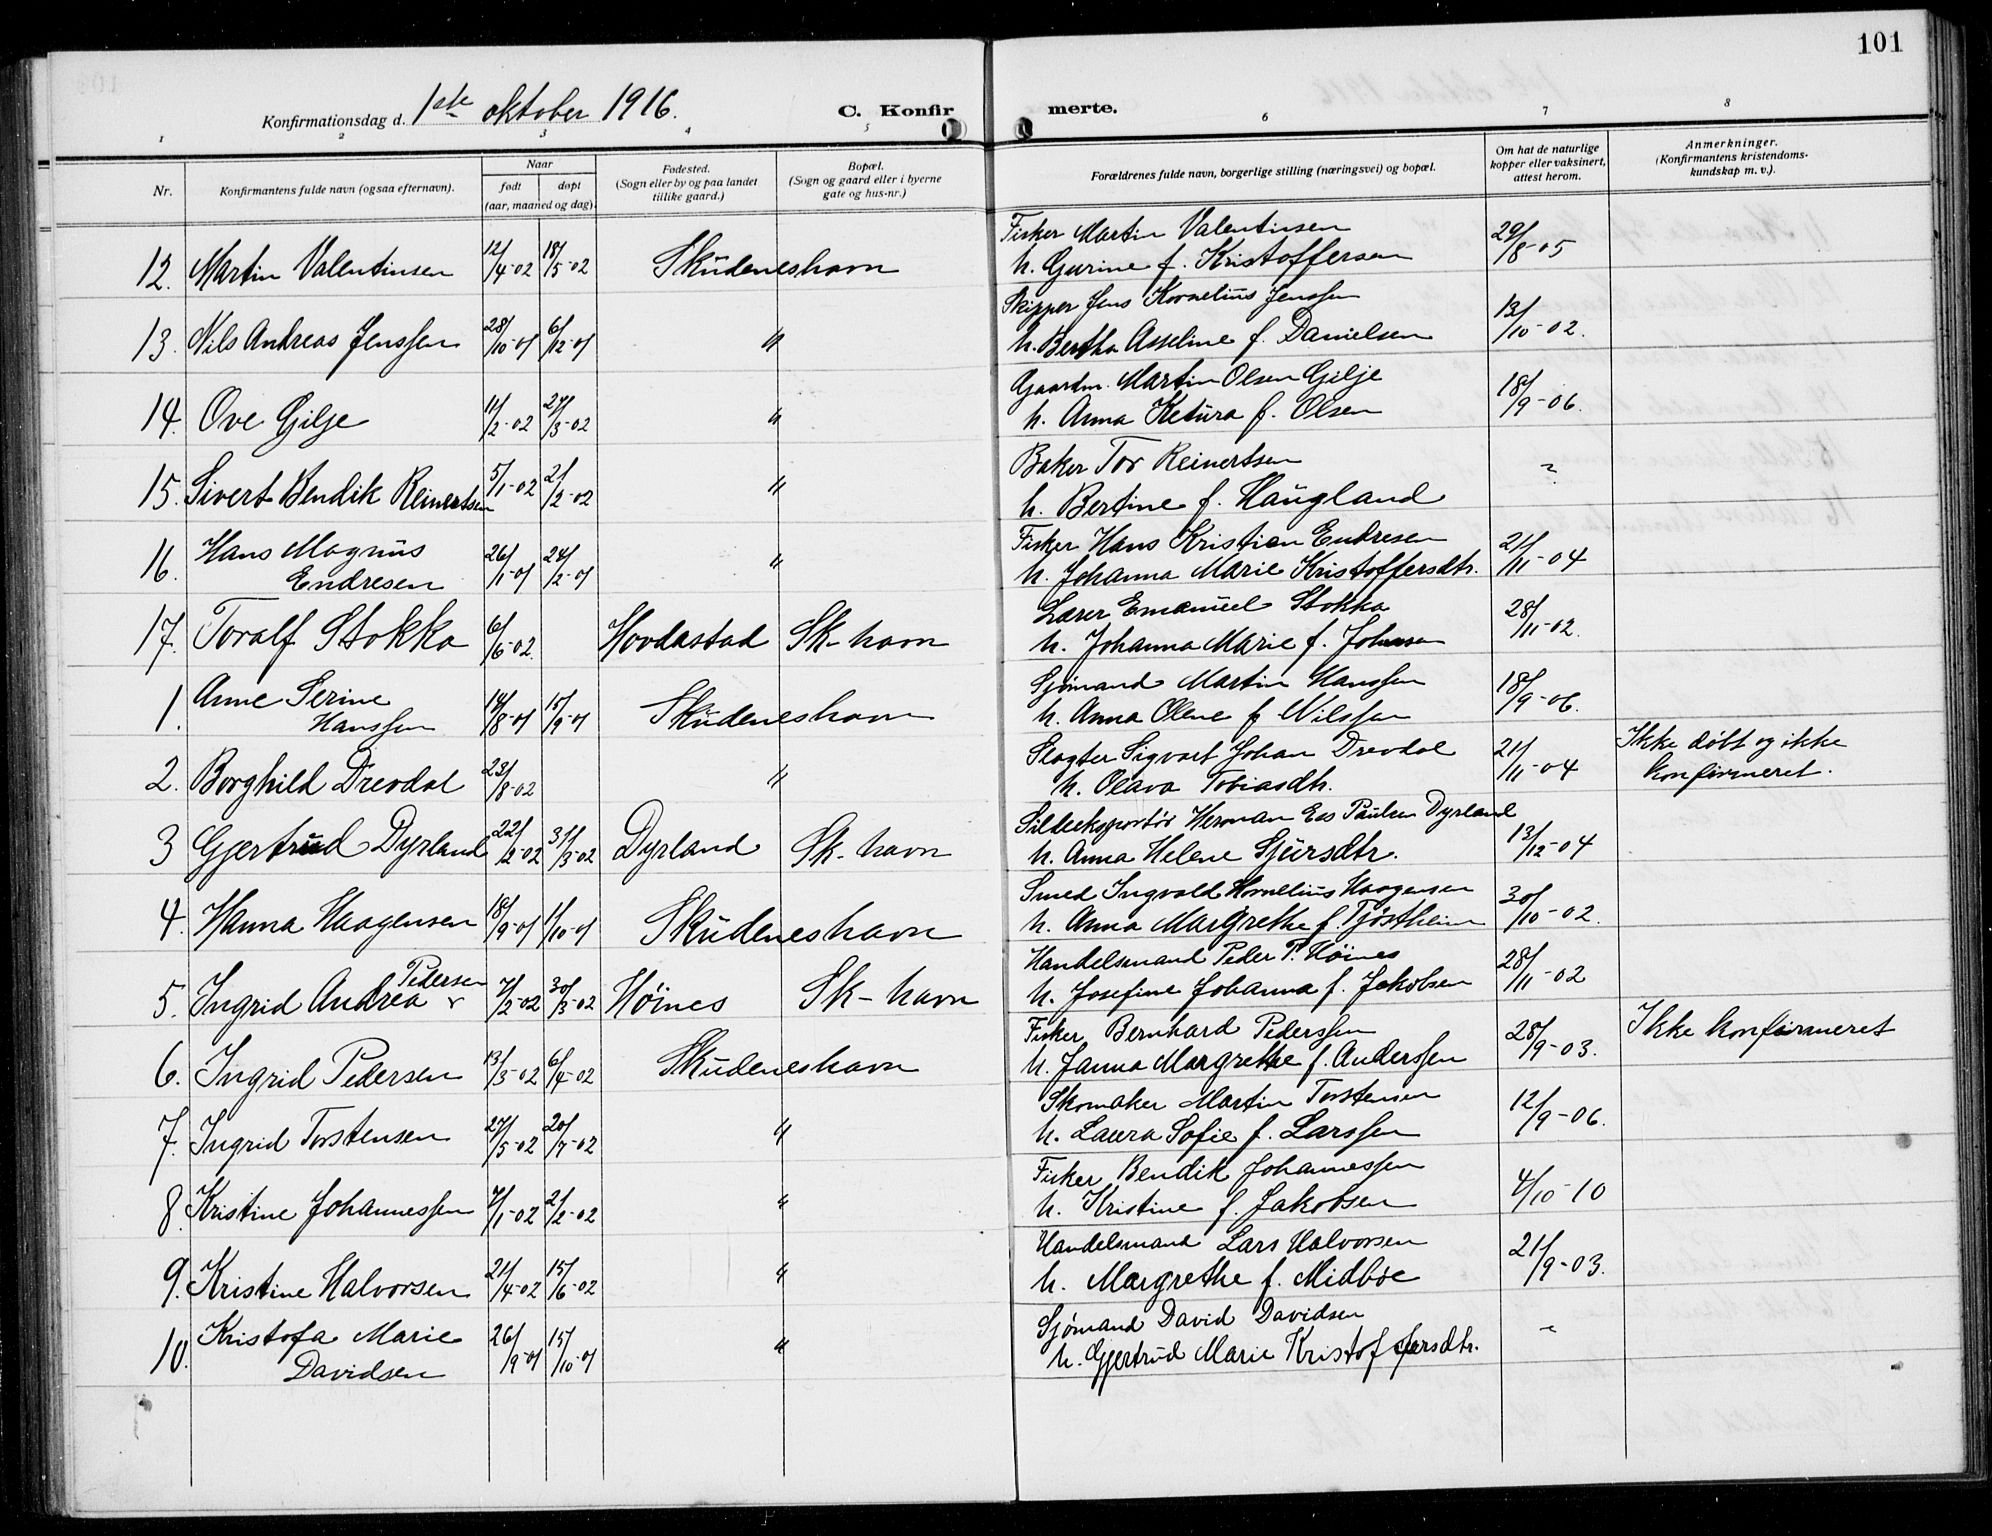 101
Konfirmationsdag d. 1ste oktober 1916. C. Konfirmerte.
1 2 3 4 5 6 7 8
Nr. Konfirmantens fulde navn (ogsaa efternavn). Naar født døpt (aar, maaned og dag). Fødested. (Sogn eller by og paa landet tillike gaard.) Bopæl. (Sogn og gaard eller i byerne gate og hus-nr.) Forældrenes fulde navn, borgerlige stilling (næringsvei) og bopæl. Om hat de naturlige kopper eller vaksinert, attest herom. Anmerkninger. (Konfirmantens kristendoms-kundskap m. v.).
12. Martin Valentinsen 12/4-02 18/5-02 Skudeneshavn Fisker Martin Valentinsen 29/8-05
h. Gurine f. Kristoffersen
13. Nils Andreas Jenssen 28/10-01 6/12-01 " Skipper Jens Kornelius Jenssen 13/10-02.
h. Bertha Asseline f. Danielsen
14. Ove Gilje 11/2-02 27/3-02 " Gaardm. Martin Olsen Gilje 18/9-06.
h. Anna Ketura f. Olsen
15. Sivert Bendik Reinertsen 5/1-02 2/2-02 " Baker Tor Reinertsen ~
h. Bertine f. Haugland
16. Hans Magnus 26/1-01 24/2-01 " Fisker Hans Kristian Endresen 21/11-04
Endresen h. Johanna Marie Kristoffersdtr.
17. Toralf Stokka 6/6-02. Hovdastad Sk-havn Lærer Emanuel Stokka 28/11-02.
h. Johanna Marie f. Johnsen
1. Anne Serine 14/8-01 15/9-01 Skudeneshavn Sjømand Martin Hanssen 18/9-06.
Hanssen h. Anna Olene f. Nilssen
2. Borghild Drevdal 23/8-02 " Slagter Sigvart Johan Drevdal 21/11-04 Ikke døbt og ikke
h. Olava Tobiasdtr. konfirmeret.
3 Gjertrud Dyrland 22/2-02 31/3-02 Dyrland Sk-havn Sildeeksportør Herman Ees Paulsen Dyrland 13/12-04
h. Anna Helene Sjursdtr.
4. Hanna Haagensen 18/9-01 1/10-01 Skudeneshavn Smed Ingvald Kornelius Haagensen 30/10-02.
h. Anna Margrethe f. Tjøstheim
5. Ingrid Andrea Pedersen 7/2-02 30/3-02 Høines Sk-havn Handelsmand Peder P. Høines 28/11-02
h. Josefine Johanna f. Jakobsen
6. Ingrid Pedersen 13/3-02 6/4-02 Skudeneshavn Fisker Bernhard Pederssen 28/9-03. Ikke konfirmeret
h. Janna Margrethe f. Anderssen
7. Ingrid Torstensen 27/5-02 20/7-02 " Skomaker Martin Torstensen 12/9-06.
h. Laura Sofie f. Larssen
8. Kristine Johannessen 7/1-02 2/2-02 " Fisker Bendik Johannessen 4/10-10
h. Kristine f. Jakobsen
9. Kristine Halvorsen 21/4-02 15/6-02 " Handelsmand Lars Halvorsen 21/9-03.
h. Margrethe f. Midbøe
10. Kristofa Marie 26/9-01 15/10-01 " Sjømand David Davidsen ~
Davidsen h. Gjertrud Marie Kristoffersdtr.